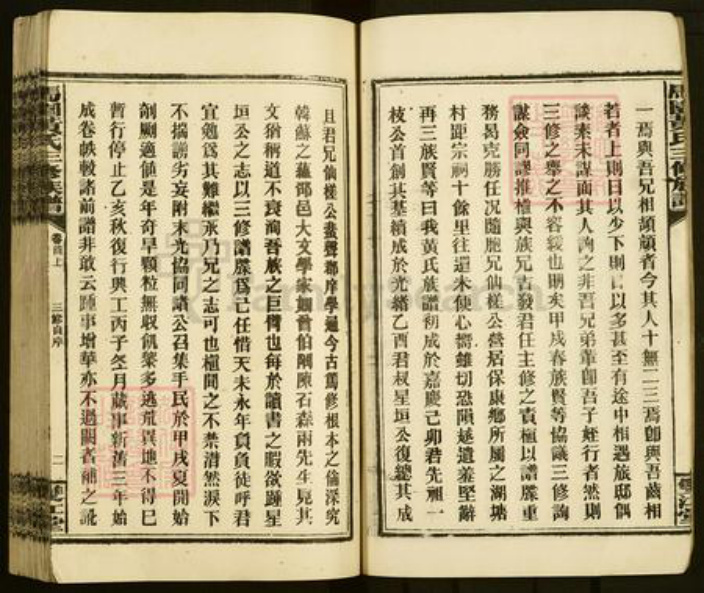 一焉與吾兄相頡頏者今其人十無二三焉卽與吾齒相
若者上則日以少下則日以多甚至有途中相遇旅邸偶
談素未謀面其人詢之非吾兄弟輩卽吾子姪行者然則
三修之舉之不容緩也明矣甲戌春族賢等協議三修詢
謀僉同謬推權與族兄吉發君任主修之責權以譜牒重
務曷克勝任况隨胞兄仙槎公營居保康鄉所屬之湖塘
村距宗祠十餘里往還未便心嚮雖切恐隕越遺羞堅辭
再三族賢等曰我黃氏族譜初成於嘉慶己卯君先祖一
枝公首創其基續成於光緒乙酉君叔星垣公復總其成
且君兄仙槎公蜚聲郡庠學通今古篤修根本之倫深究
韓蘇之蘊邵邑大文學家如曾伯陳石森兩先生見其
文猶稱道不衰洵吾族之巨儒也每於讀書之暇欲踵星
垣公之志以三修譜牒爲己任惜天未永年負負徒呼君
宜勉爲其難繼承乃兄之志可也權聞之不禁潸然淚下
不揣譾劣妄附末光協同諸公召集手民於甲戌夏開始
剞劂適値是年奇旱顆粒無收飢黎多逃荒異地不得已
暫行停止乙亥秋復行興工丙子冬月蕆事新舊三年始
成卷帙較諸前譜非敢云踵事增華亦不過闕者補之訛
黃氏三修族譜
卷首上
三修自序
二
江堂